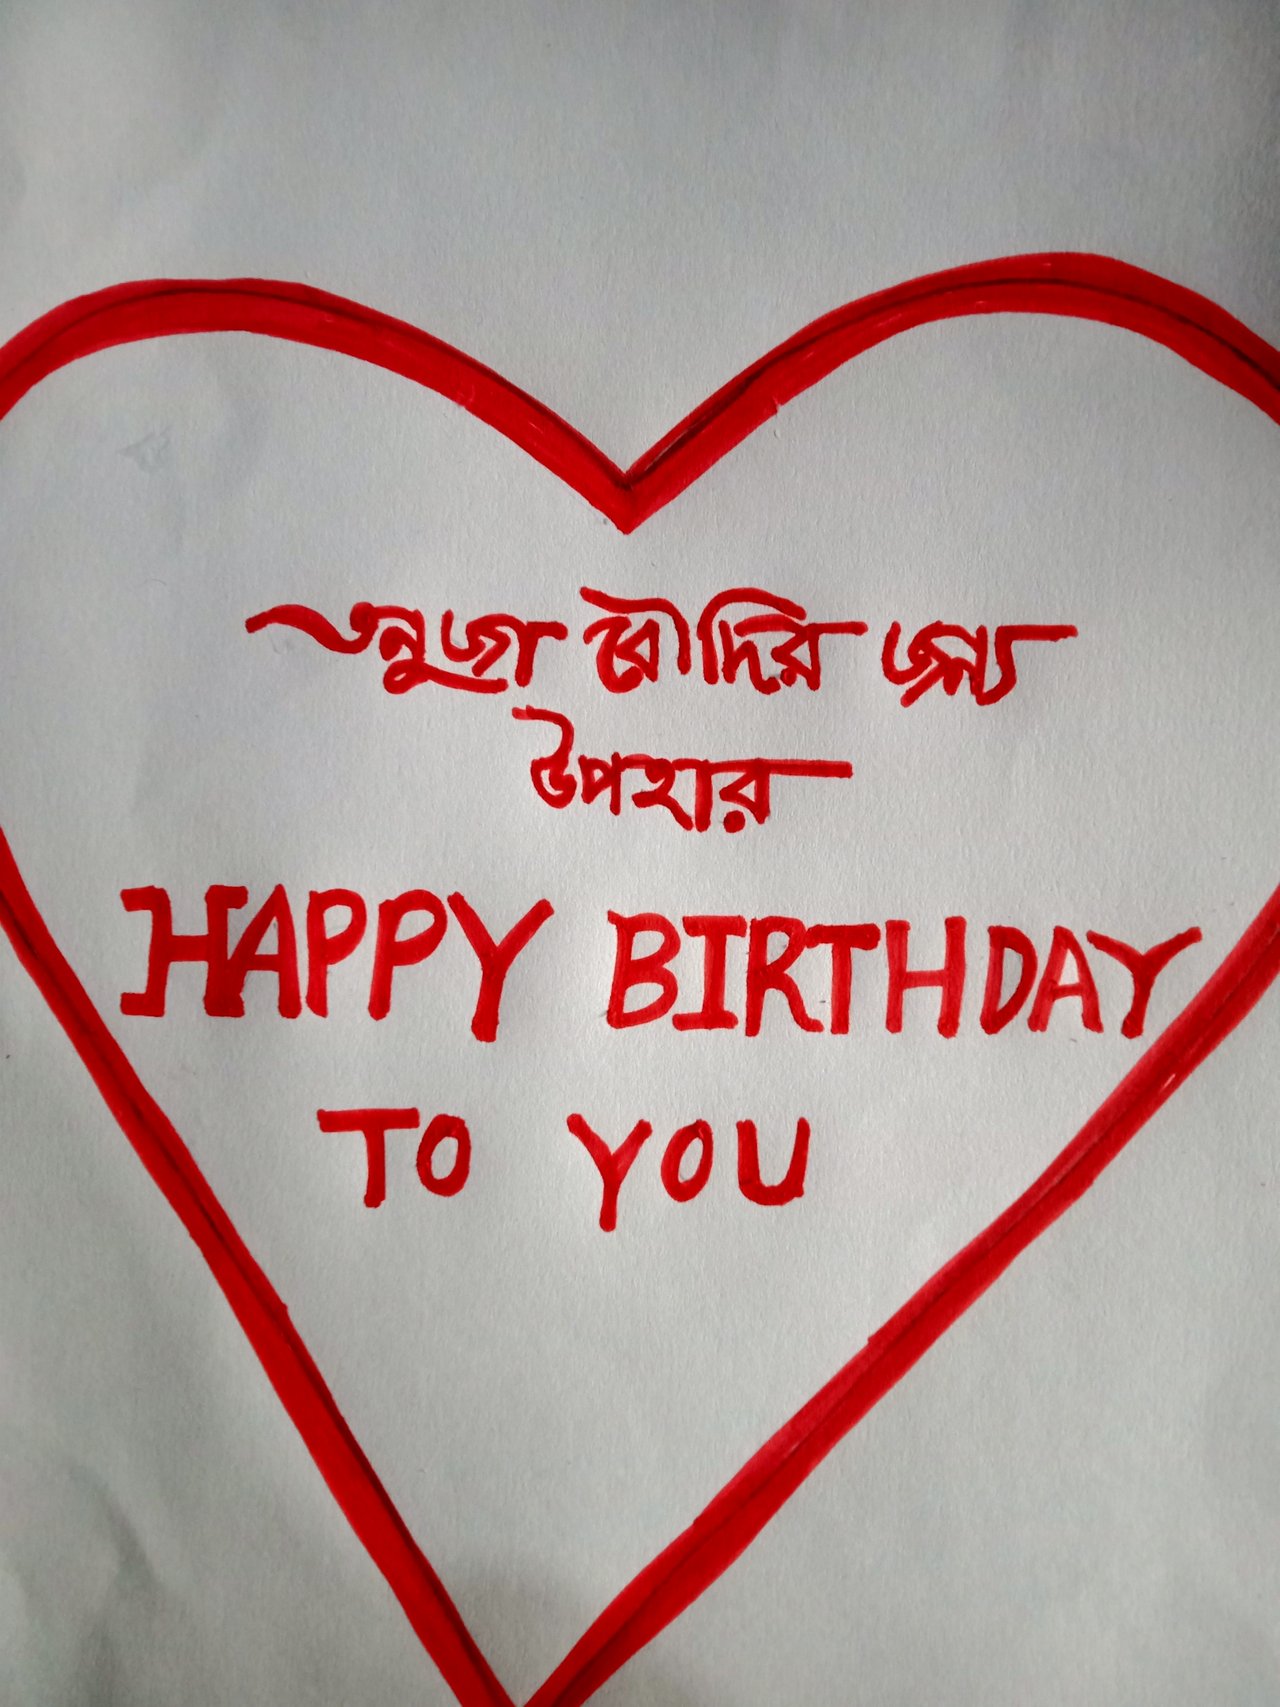 তনুজা বৌদির জন্য
উপহার
HAPPY BIRTHDAY
TO YOU